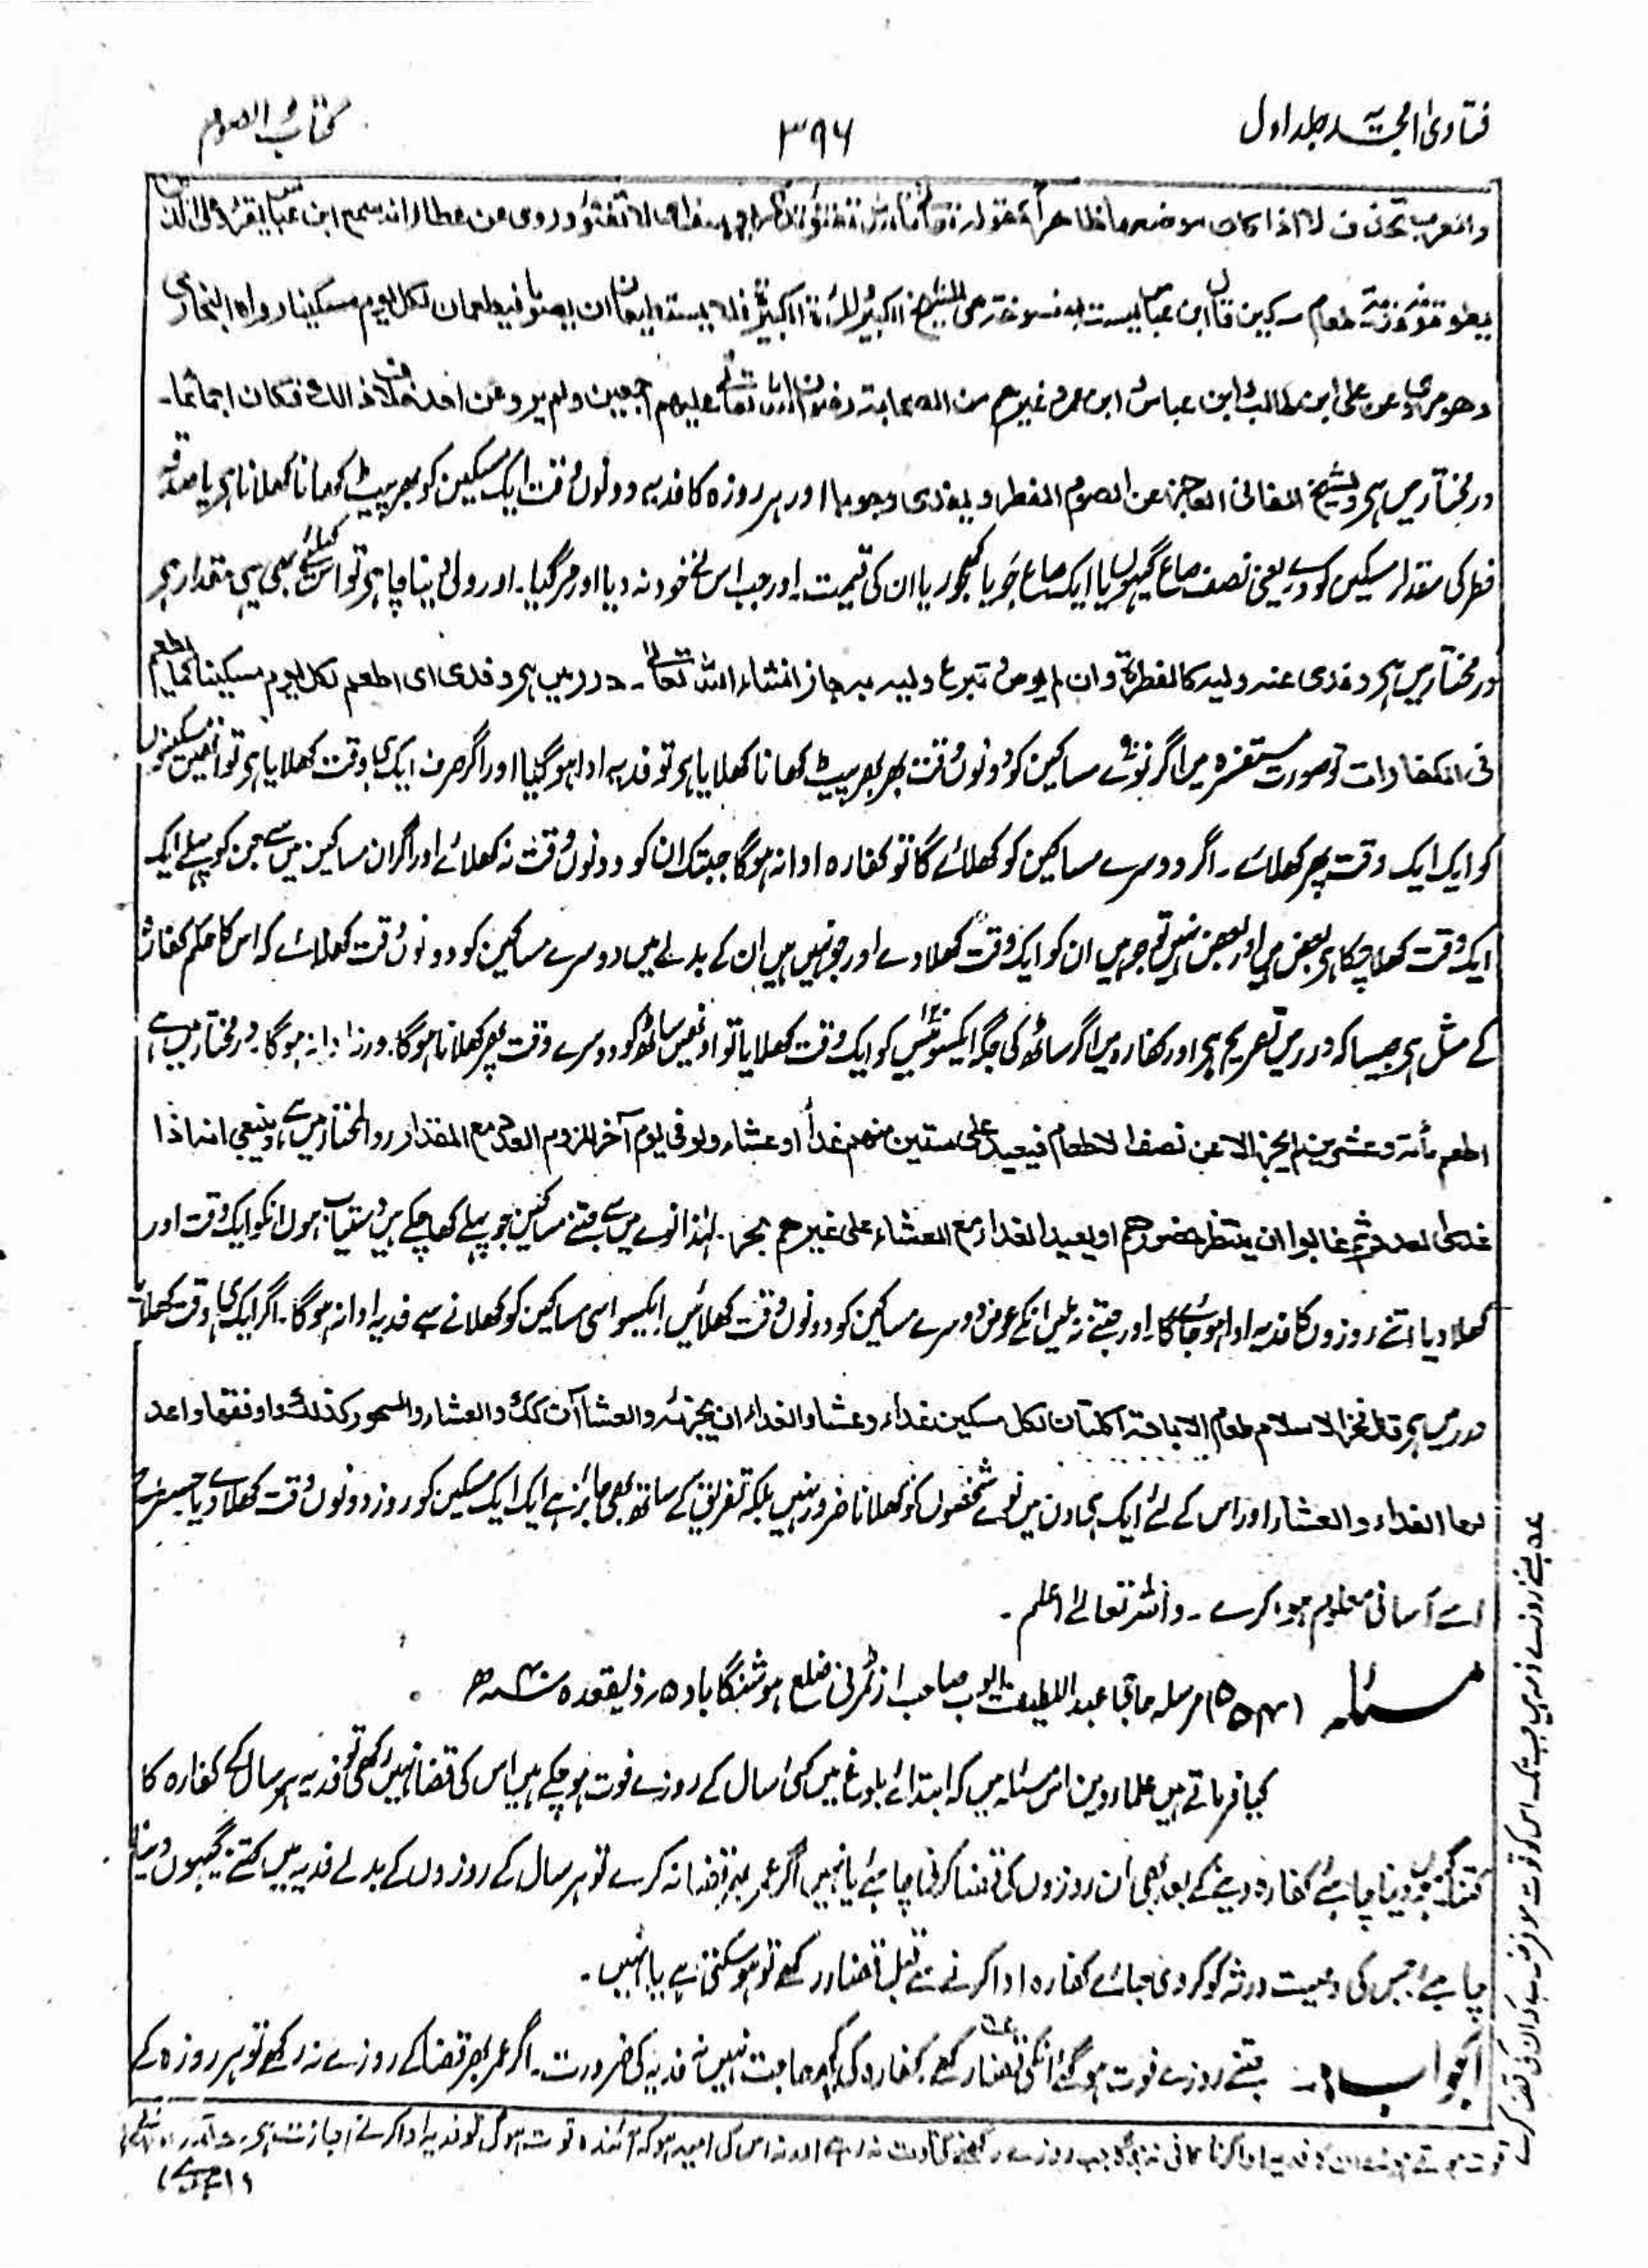 فتاویٰ امجدیہ جلد اول
۳۹۶
کتاب الصوم
والعرب تحذف لا اذا کان موضعه ظاهراً کقوله تعالیٰ تفتؤ تذکر یوسف ای لا تفتؤ وروی عن عطاء انه سمع ابن عباس یقرأ وعلی الذین
یطوقونه فدیة طعام مسکین قال ابن عباس لیست بمنسوخة هی للشیخ الکبیر والمرأة الکبیرة لا یستطیعان ان یصوما فیطعمان لکل یوم مسکینا رواه البخاری
وهو مروی عن علی ابن طالب و ابن عباس و ابن عمر و غیرهم من الصحابة رضوان الله تعالیٰ علیهم اجمعین ولم یرو عن احد خلاف ذالک فکان اجماعا۔
درمختار میں ہے وللشیخ الفانی العاجز عن الصوم الفطر و یفدی وجوبا اور ہر روزہ کا فدیہ دونوں وقت ایک مسکین کو بھر پیٹ کھانا کھلانا ہے یا صدقہ
فطر کی مقدار مسکین کو دے یعنی نصف صاع گیہوں یا ایک صاع جَو یا کھجور یا ان کی قیمت۔ اور جب اس نے خود نہ دیا اور مر گیا۔ اور ولی دینا چاہے تو اس کیلئے بھی یہی مقدار ہے
درمختار میں ہے و فدی عنه ولیه کالفطرة و ان لم یوص و تبرع ولیه به جاز انشاء الله تعالیٰ۔ درر میں ہے و فدی ای اطعم لکل یوم مسکینا کما یطعم
فی الکفارات تو صورت مستفسرہ میں اگر نوے مساکین کو دونوں وقت بھر بھر پیٹ کھانا کھلایا ہے تو فدیہ ادا ہو گیا اور اگر صرف ایک ہی وقت کھلایا ہے تو انھیں مسکینوں
کو ایک ایک وقت پھر کھلائے۔ اگر دوسرے مساکین کو کھلائے گا تو کفارہ ادا نہ ہوگا جبتک ان کو دونوں وقت نہ کھلائے اور اگر ان مساکین میں سے جن کو پہلے ایک
ایک وقت کھلا چکا ہے بعض ہیں اور بعض نہیں تو جو ہیں ان کو ایک وقت کھلا دے اور جو نہیں ہیں ان کے بدلے میں دوسرے مساکین کو دونوں وقت کھلائے کہ اس کا حکم کفارہ
کے مثل ہے جیسا کہ درر میں تصریح ہے اور کفارہ میں اگر ساٹھ کی جگہ ایکسو بیس کو ایک وقت کھلایا تو اونھیں ساٹھ کو دوسرے وقت پھر کھلانا ہوگا۔ ورنہ ادا نہ ہوگا۔ درمختار میں ہے
اطعم مأة و عشرین لم یجز الا عن نصف الاطعام فیعید علی ستین منهم غداءً او عشاء ولو فی یوم آخر للزوم العدد مع المقدار۔ ردالمختار میں ہے و ینبغی انه اذا
غدی العدد ثم غابوا ان ینتظر حضورهم او یعید الغداء مع العشاء علی غیرهم بحر۔ لہٰذا نوے میں سے جتنے مساکین جو پہلے کھا چکے ہیں دستیاب ہوں انکو ایک وقت اور
کھلا دیا اتنے روزوں کا فدیہ ادا ہو جائے گا۔ اور جتنے نہ ملیں انکے عوض دوسرے مساکین کو دونوں وقت کھلائیں ایکسو اسی مساکین کو کھلانے سے فدیہ ادا نہ ہوگا۔ اگر ایک ہی وقت کھلایا
درر میں ہے قال فخر الاسلام طعام الاباحة اکلتان لکل مسکین غداء و عشاء والغداءان یجزئه والعشاآن کذلک والعشاء والسحور کذلک واوفقها واعد
لها الغداء والعشاء اور اس کے لئے ایک ہی دن میں نوے شخصوں کو کھلانا ضرور نہیں بلکہ تفریق کے ساتھ بھی جائز ہے ایک ایک مسکین کو روز دونوں وقت کھلادے یا جسطرح
اسے آسانی معلوم ہو، کرے۔ واللہ تعالیٰ اعلم۔
مسئلہ (۵۵۴) مرسلہ حاجی عبد اللطیف ایوب صاحب از ٹمرنی ضلع ہوشنگاباد ۵؍ ذیقعدہ
کیا فرماتے ہیں علماء دین اس مسئلہ میں کہ ابتدائے بلوغ میں کئی سال کے روزے فوت ہو چکے ہیں اس کی قضا نہیں رکھی تو فدیہ ہر سال کے کفارہ کا
کتنا گیہوں دینا چاہئے کفارہ دینے کے بعد بھی ان روزوں کی قضا کرنی چاہئے یا نہیں اگر عمر بھر قضا نہ کرے تو ہر سال کے روزوں کے بدلے فدیہ میں کتنے گیہوں دینا
چاہئے جس کی وصیت ورثہ کو کر دی جائے کفارہ ادا کرنے سے قبل قضا رکھے تو ہو سکتی ہے یا نہیں۔
الجواب:۔ جتنے روزے فوت ہو گئے انکی قضا رکھے کفارہ کی کچھ حاجت نہیں نہ فدیہ کی ضرورت۔ اگر عمر بھر قضا کے روزے نہ رکھے تو ہر روزہ کے
عہ جتنے روزے ذمہ ہیں جب تک اس کو قوت ہو فرض ہے کہ ان کی قضا کرے
قوت ہوتے ہوئے ان کا فدیہ ادا کرنا کافی نہ ہوگا جب روزے رکھنے کی قوت نہ رہے اور نہ اس کی امید ہو کہ آئندہ قوت ہوگی تو فدیہ ادا کرنے اجازت ہے۔ واللہ تعالیٰ اعلم